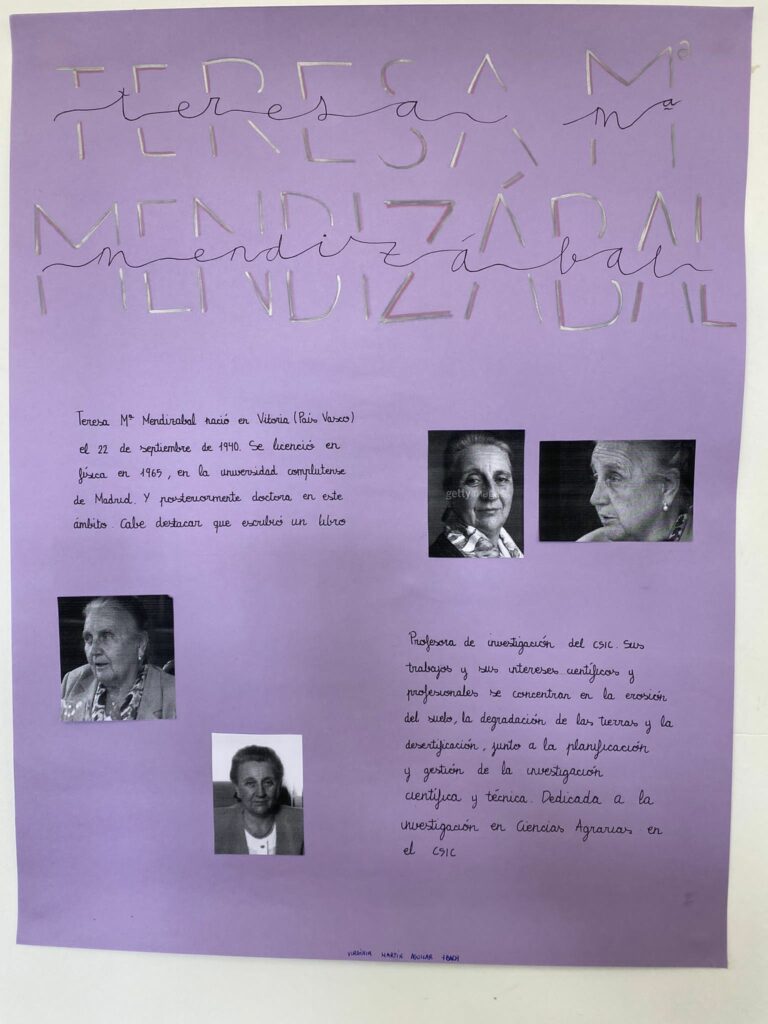 TERESA Mª
teresa mª
MENDIZÁBAL
mendizábal
Teresa Mª Mendizabal nació en Vitoria (País Vasco)
el 22 de septiembre de 1940. Se licenció en
física en 1965, en la universidad complutense
de Madrid. Y posteriormente doctora en este
ámbito. Cabe destacar que escribió un libro
getty im
Profesora de investigación del CSIC. Sus
trabajos y sus intereses científicos y
profesionales se concentran en la erosión
del suelo, la degradación de las tierras y la
desertificación, junto a la planificación
y gestión de la investigación
científica y técnica. Dedicada a la
investigación en Ciencias Agrarias en
el CSIC
VIRGINIA MARTÍN AGUILAR 1ºBACH